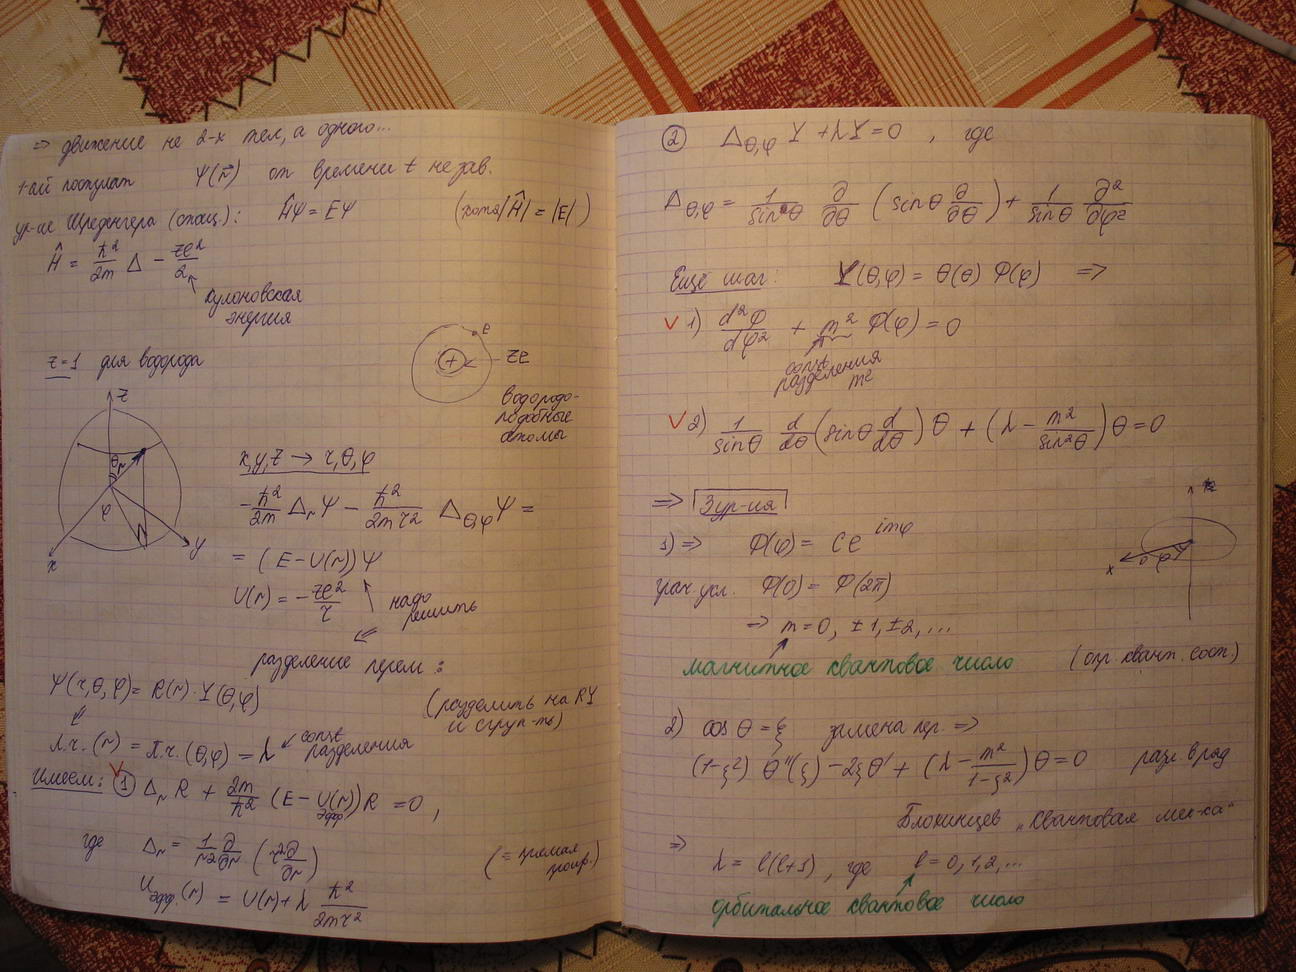 ⇒ движение не 2-х тел, а одного...
1-ый постулат Ψ(r⃗) от времени t не зав.
ур-ие Шредингера (стац.): ĤΨ = EΨ (хотя |Ĥ| = |E|)
Ĥ = ħ²/2m Δ − ze²/2
кулоновская
энергия
z=1 для водорода
e
ze
водородо-
подобные
атомы
z
θ r
φ
x y
x,y,z → r,θ,φ
−ħ²/2m Δᵣ Ψ − ħ²/2mr² Δθ,φ Ψ =
= (E − U(r)) Ψ
U(r) = − ze²/r
надо
решить
⇐
разделение перем:
Ψ(r,θ,φ) = R(r)·Y(θ,φ)
(разделить на RY
и сгруп-ть)
л.ч.(r) = п.ч.(θ,φ) = λ ← const
разделения
Имеем: ① Δᵣ R + 2m/ħ² (E − Uэфф(r)) R = 0,
где Δᵣ = 1/r² ∂/∂r (r² ∂/∂r)
Uэфф.(r) = U(r) + λ ħ²/2mr²
② Δθ,φ Y + λY = 0 , где
Δθ,φ = 1/sinθ ∂/∂θ (sinθ ∂/∂θ) + 1/sinθ ∂²/∂φ²
Ещё шаг: Y(θ,φ) = Θ(θ) Φ(φ) ⇒
V 1) d²Φ/dφ² + m² Φ(φ) = 0
const
разделения
V 2) 1/sinθ d/dθ (sinθ d/dθ) Θ + (λ − m²/sin²θ) Θ = 0
⇒ 3 ур-ия
1) ⇒ Φ(φ) = Ce^{imφ}
z
x 0 φ
усл. Φ(0) = Φ(2π)
⇒ m = 0, ±1, ±2, ...
магнитное квантовое число (орг. квант. сост.)
2) cos θ = ξ замена пер. ⇒
(1−ξ²) Θ''(ξ) − 2ξΘ' + (λ − m²/1−ξ²) Θ = 0 разл. в ряд
Блохинцев „Квантовая мех-ка“
⇒
λ = l(l+1), где l = 0,1,2,...
орбитальное квантовое число